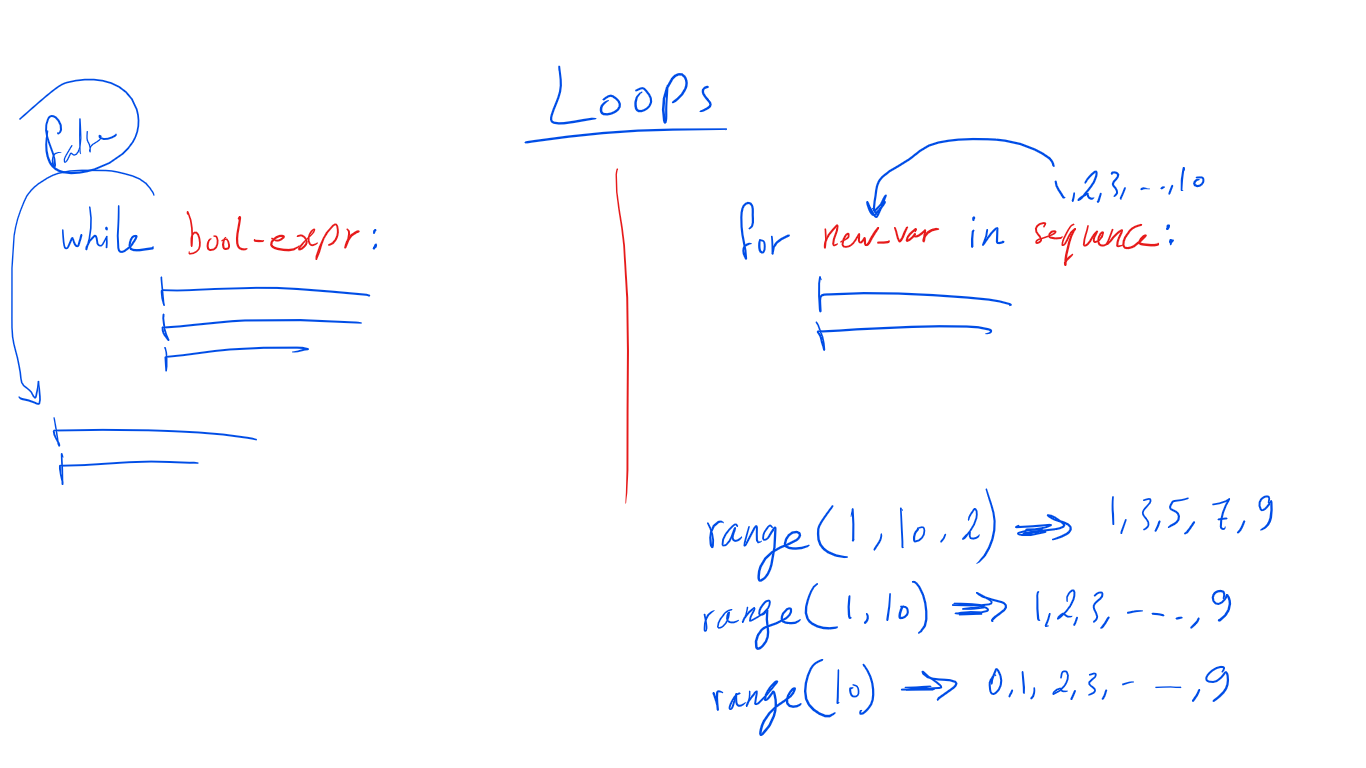 Loops
false
while bool-expr:
1,2,3,---,10
for new_var in sequence:
range(1,10,2) ⇒ 1,3,5,7,9
range(1,10) ⇒ 1,2,3,----,9
range(10) → 0,1,2,3,--,9